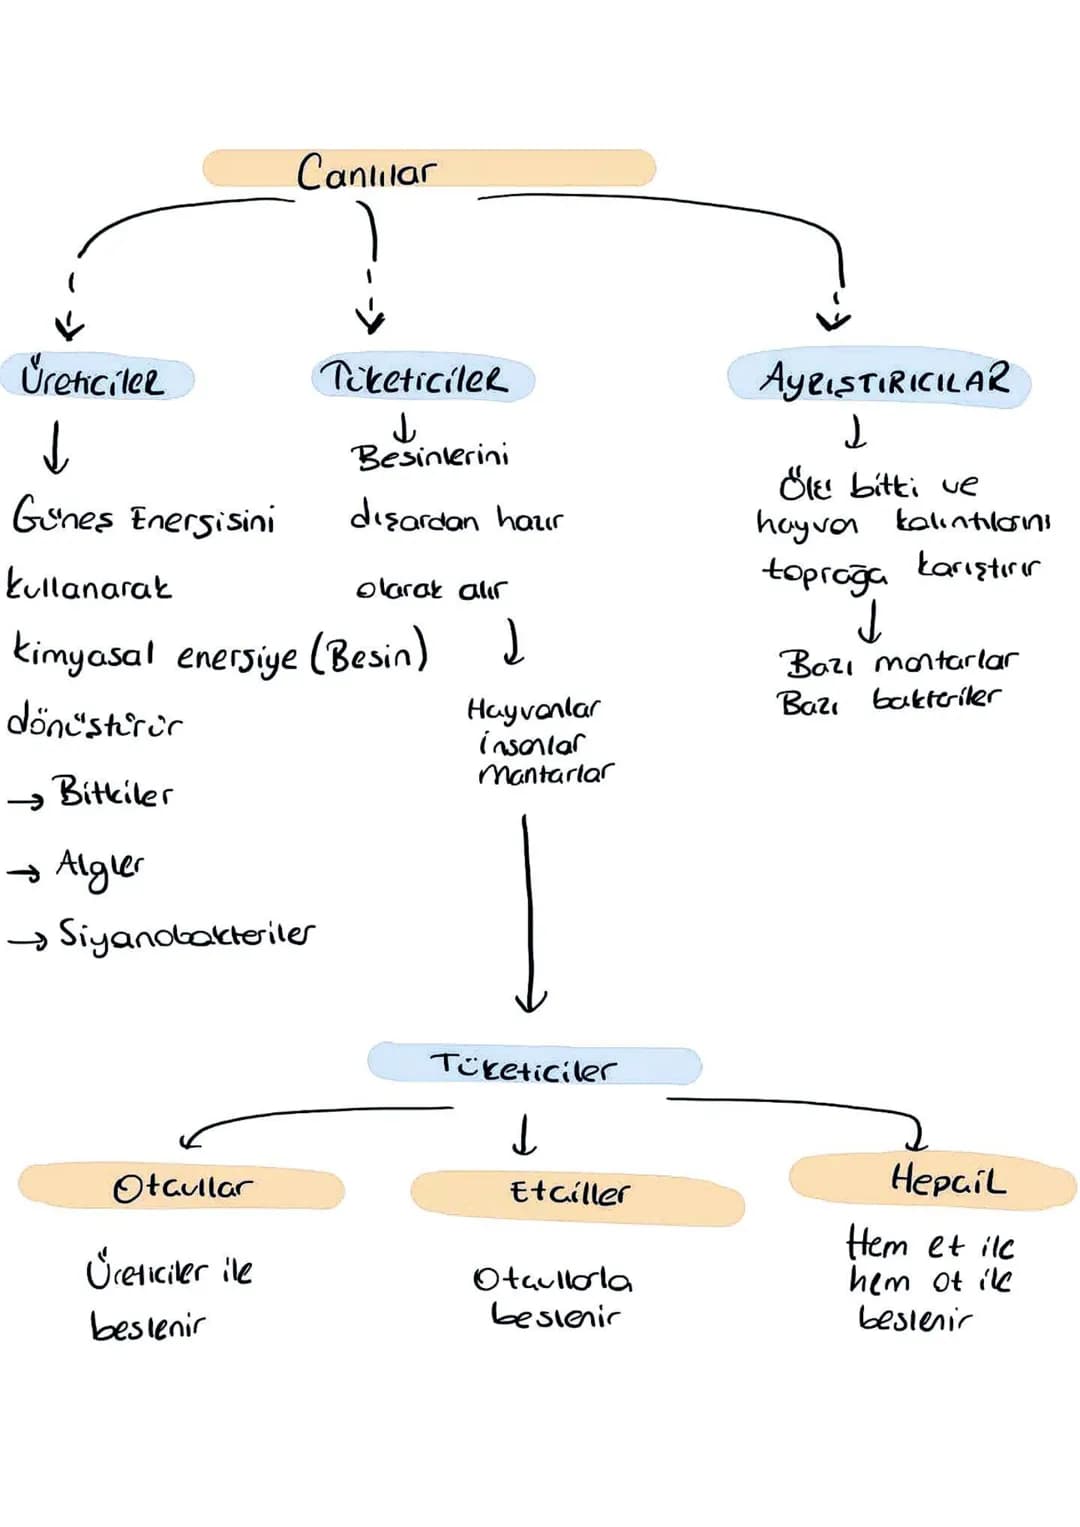 Canlılar
Üreticiler
Güneş Enerjisini
kullanarak
kimyasal enerjiye (Besin)
dönüştürür
→ Bitkiler
→ Algler
→ Siyanobakteriler
Tüketiciler
Besinlerini
dışardan hazır
olarak alır
Hayvanlar
insanlar
Mantarlar
AYRIŞTIRICILAR
Ölü bitki ve
hayvan kalıntılarını
toprağa karıştırır
Bazı mantarlar
Bazı bakteriler
Tüketiciler
Otçullar
Üreticiler ile
beslenir
Etçiller
Otçullarla
beslenir
Hepçil
Hem et ile
hem ot ile
beslenir